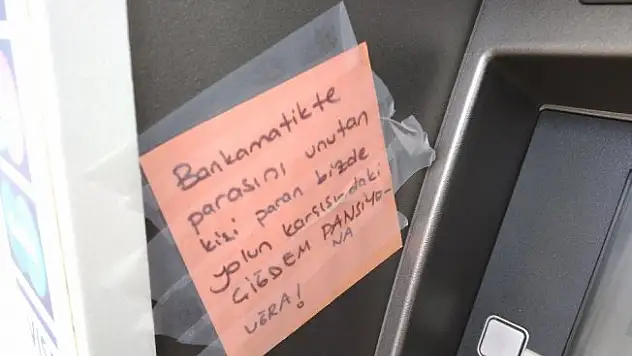 Bankamatikte
parasını unutan
kişi paran bizde
yolun karşısındaki
ÇİĞDEM PANSİYO-
NA
UĞRA!